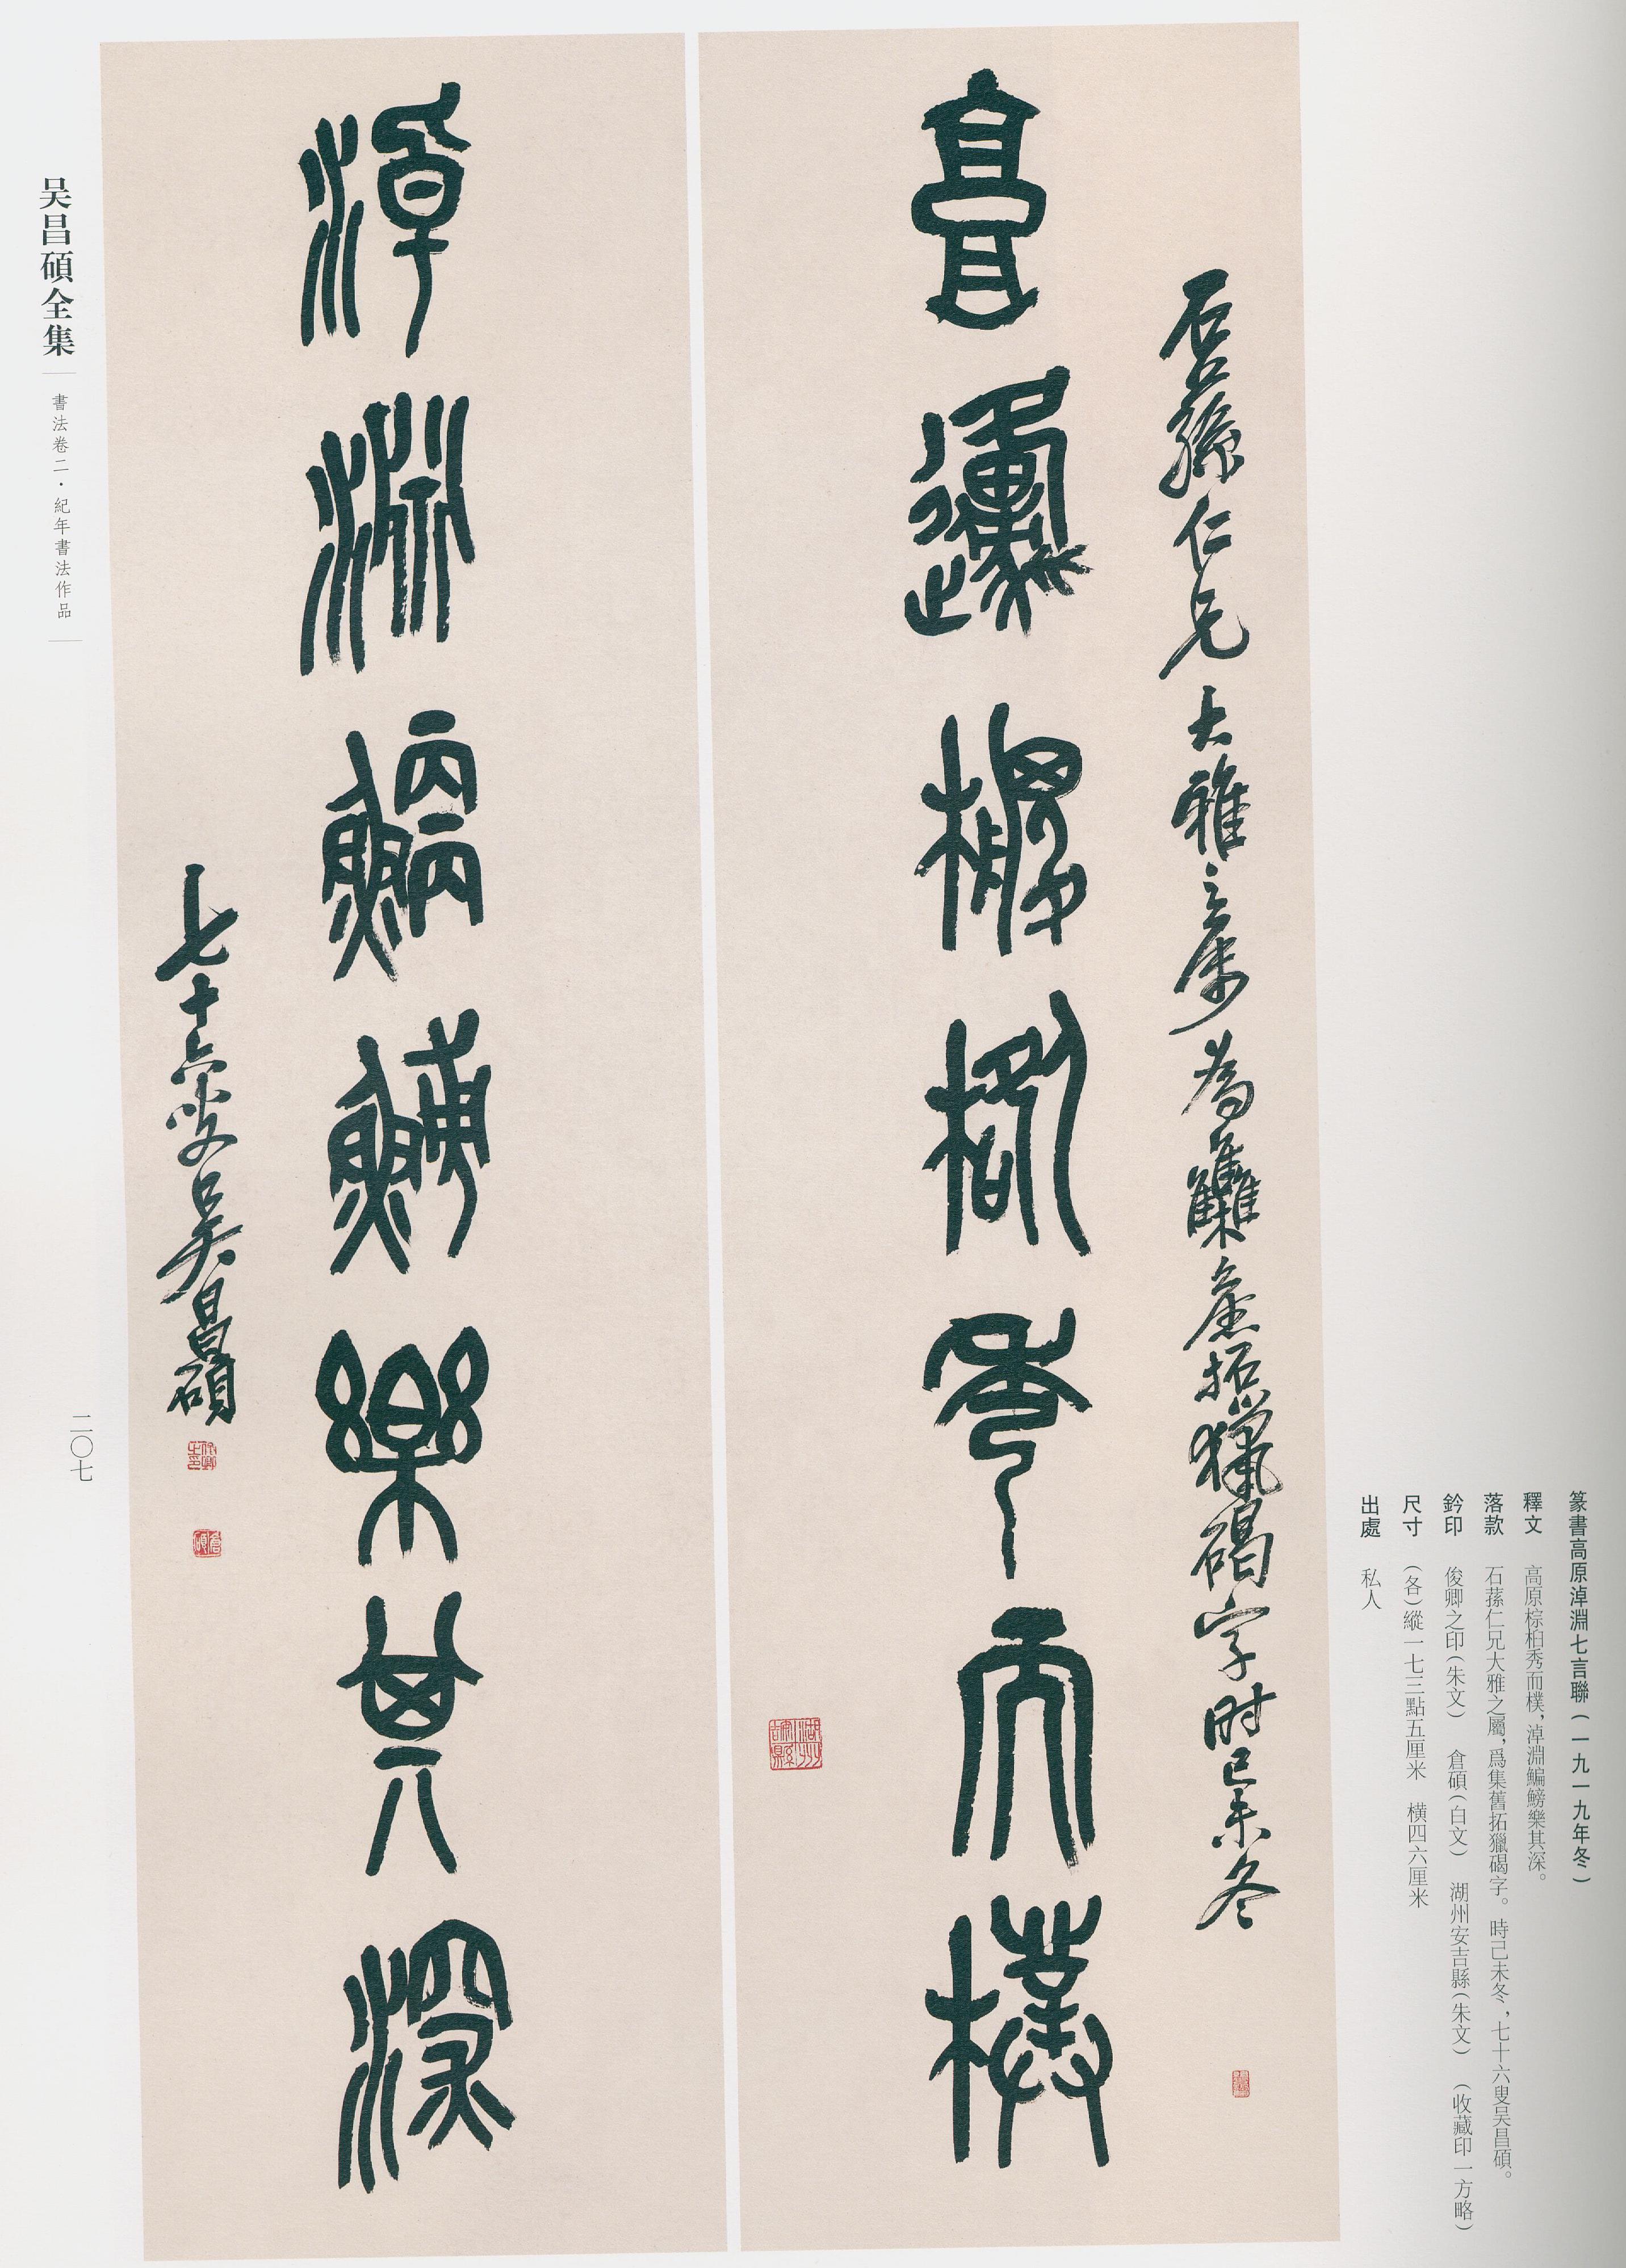 篆書高原淖淵七言聯（一九一九年冬）
釋文　高原棕桕秀而樸，淖淵鯿鰟樂其深。
落款　石蓀仁兄大雅之屬，爲集舊拓獵碣字。時己未冬，七十六叟吴昌碩。
鈐印　俊卿之印（朱文）　倉碩（白文）　湖州安吉縣（朱文）　（收藏印一方略）
尺寸　（各）縱一七三點五厘米　横四六厘米
出處　私人
石蓀仁兄大雅之屬為集舊拓獵碣字时己未冬
高原棕桕秀而樸
湖州安吉縣
淖淵鯿鰟樂其深
七十六叟吴昌碩
俊卿之印
倉碩
吴昌碩全集
書法卷二・紀年書法作品
二〇七